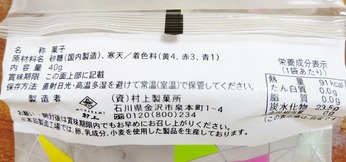 名 称 菓子
原材料名 砂糖(国内製造)、寒天／着色料(黄4、赤3、青1)
内 容 量 40g
賞味期限 この面上部に記載
保存方法 直射日光・高温多湿を避けて常温(室温)で保管してください。
製 造 者 (資)村上製菓所
石川県金沢市泉本町1-4
0120(800)234
村上
開封後は賞味期限内でもお早めにお召し上がりください。
本製造工場では、卵、乳成分、小麦を使用した製品を生産しております。
栄養成分表示
(1袋あたり)
熱 量 91kcal
たん白質 0.0g
脂 質 0.0g
炭水化物 23.5g